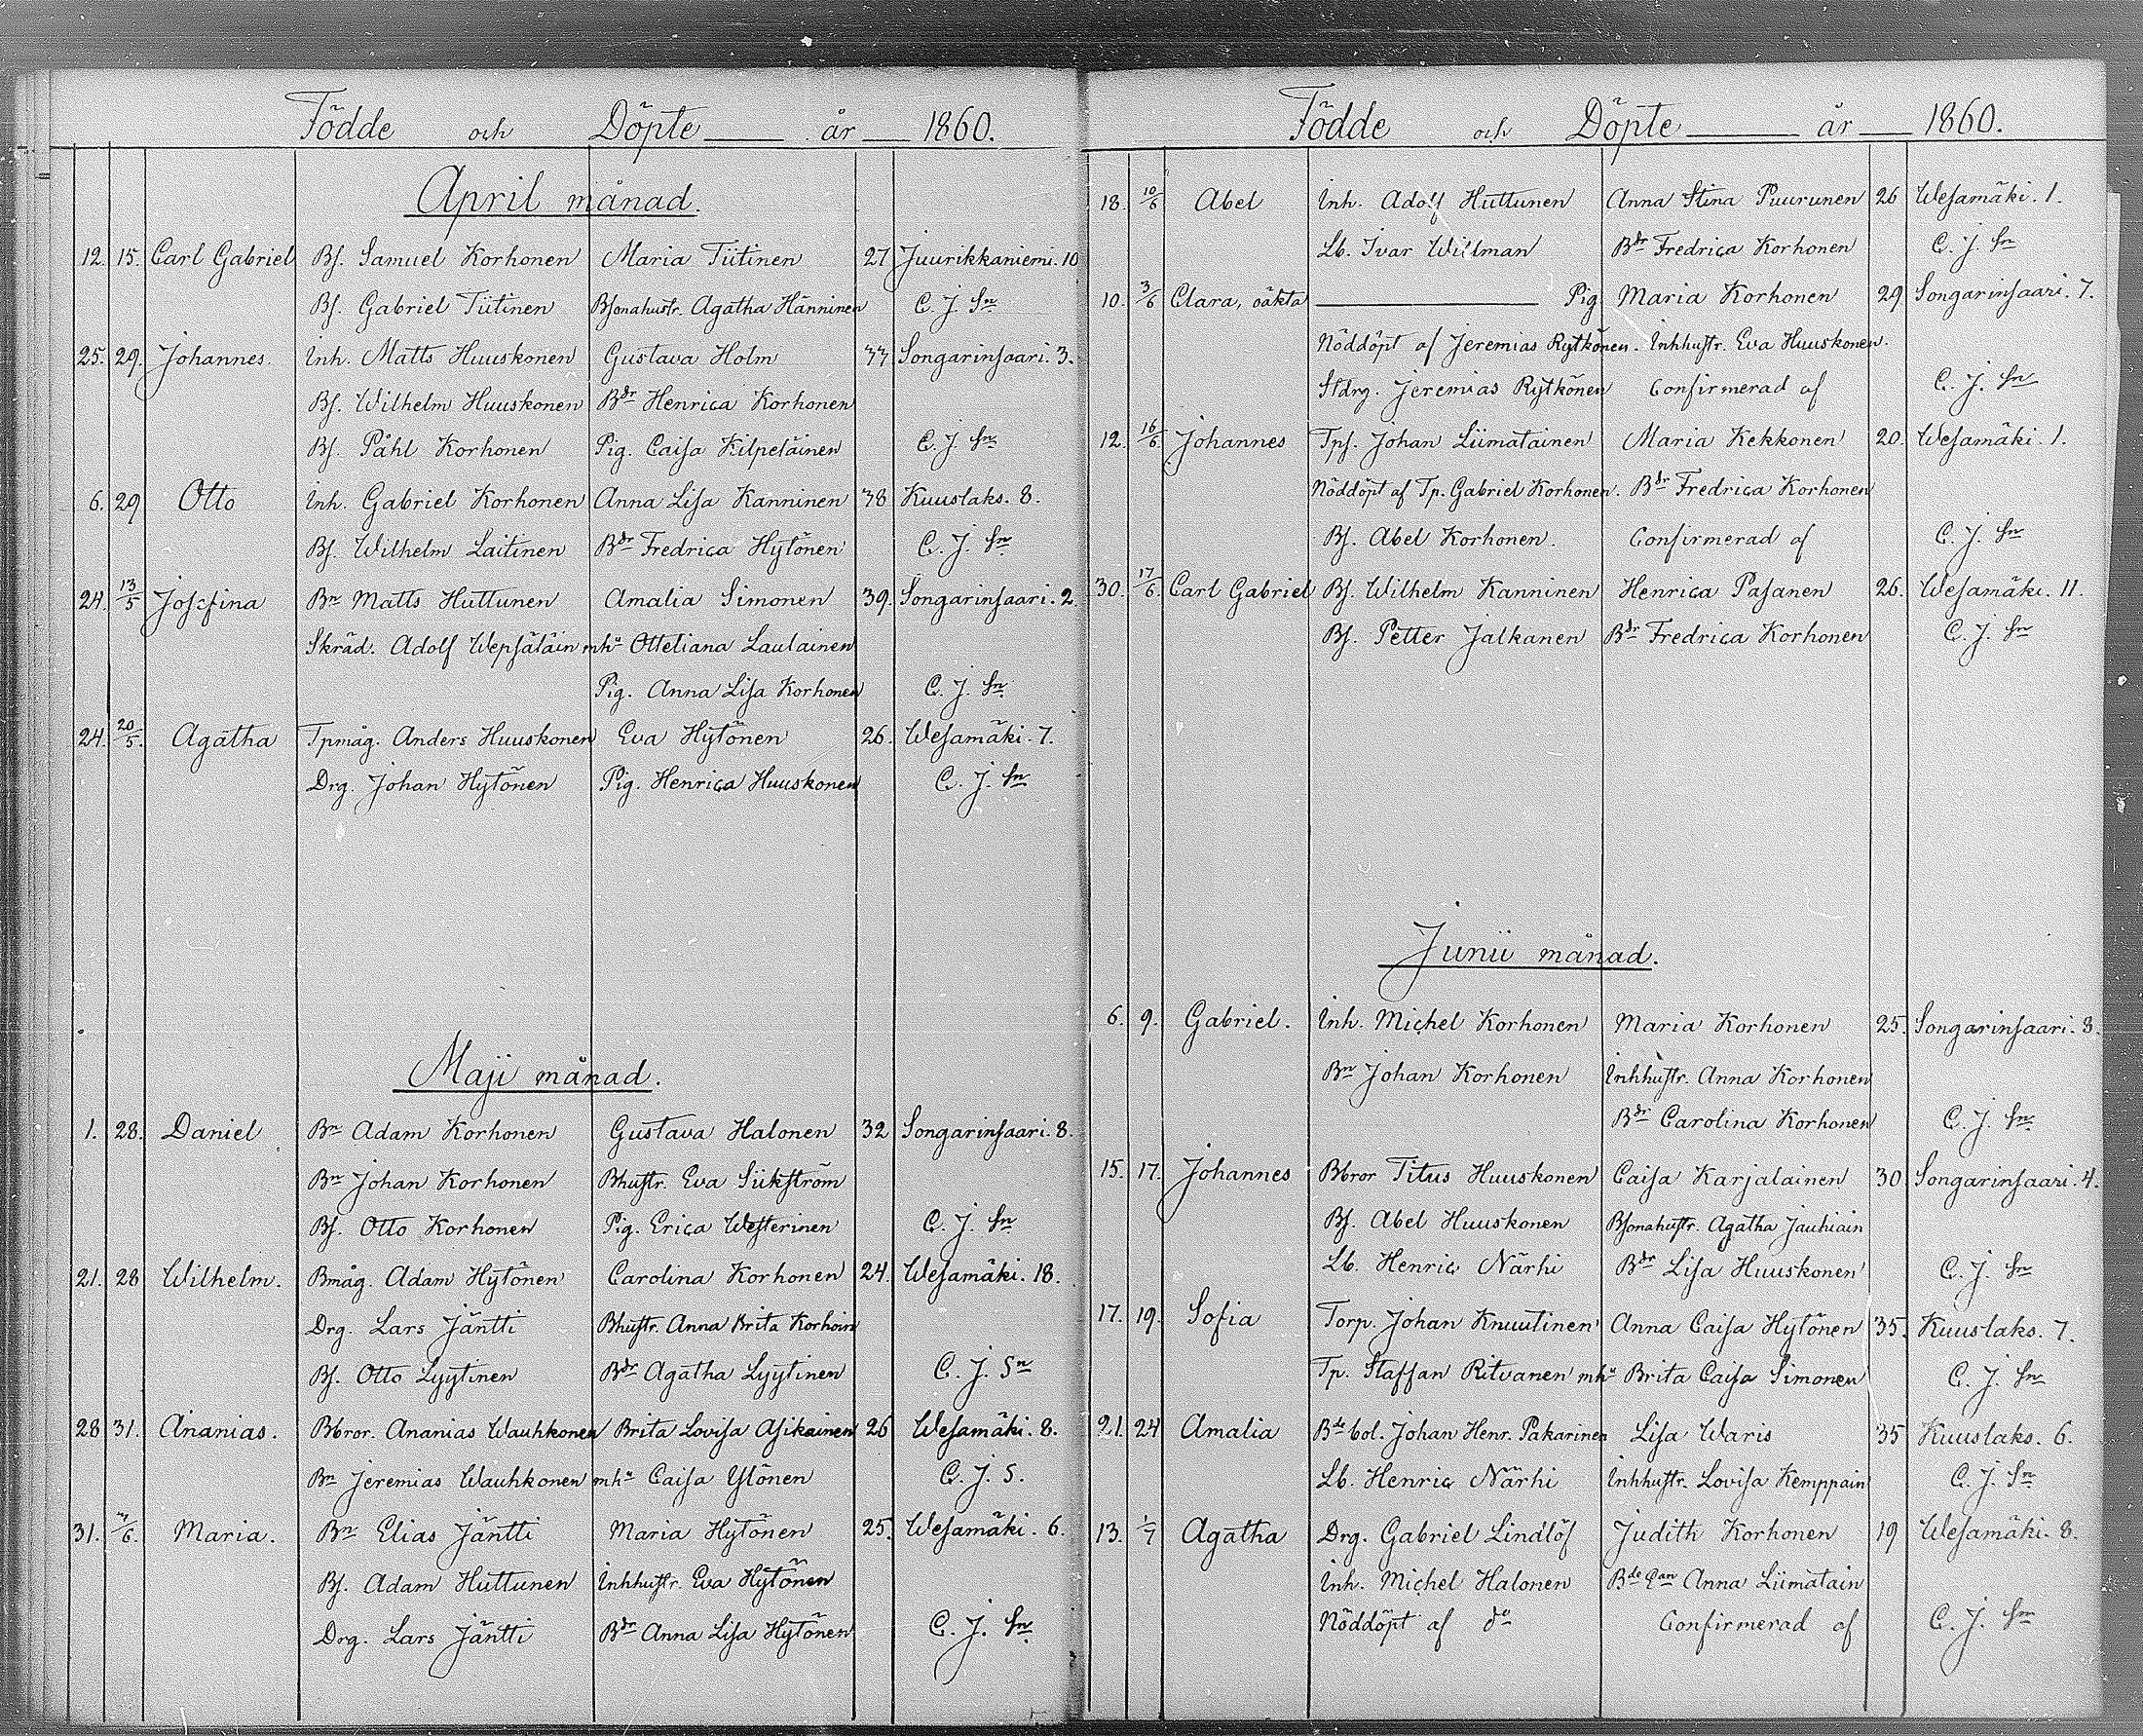 Födde och Döpte år 1860.
April månad.
12. 15. Carl Gabriel Bs. Samuel Korhonen Maria Tiitinen 27 Juurikkaniemi. 10
Bs. Gabriel Tiitinen Bsonahustr. Agatha Hänninen C. J. Sn
25. 29. Johannes. Inh. Matts Huuskonen Gustava Holm 37 Songarinsaari. 3.
Bs. Wilhelm Huuskonen Bdr Henrica Korhonen
Bs. Påhl Korhonen Pig. Caisa Kilpeläinen C. J. Sn
6. 29 Otto Inh. Gabriel Korhonen Anna Lisa Kanninen 38 Kuuslaks. 8.
Bs. Wilhelm Laitinen Bdr Fredrica Hytönen C. J. Sn
24. 13/5 Josefina Bn Matts Huttunen Amalia Simonen 39. Songarinsaari. 2.
Skräd. Adolf Wepsäläin mhu Otteliana Laulainen
Pig. Anna Lisa Korhonen C. J. Sn
24. 20/5. Agatha Tpmåg. Anders Huuskonen Eva Hytönen 26. Wesamäki. 7.
Drg. Johan Hytönen Pig. Henrica Huuskonen C. J. Sn
Maji månad.
1. 28. Daniel Bn Adam Korhonen Gustava Halonen 32 Songarinsaari. 8.
Bn Johan Korhonen Bhustr. Eva Siikström
Bs. Otto Korhonen Pig. Erica Westerinen C. J. Sn
21. 28 Wilhelm. Bmåg. Adam Hytönen Carolina Korhonen 24. Wesamäki. 18.
Drg. Lars Jäntti Bhustr. Anna Brita Korhoin
Bs. Otto Lyytinen Bdr Agatha Lyytinen C. J. Sn
28 31. Ananias. Bbror. Ananias Wauhkonen Brita Lovisa Asikainen 26 Wesamäki. 8.
Bn Jeremias Wauhkonen mhu Caisa Ylönen C. J. S.
31. /6. Maria. Bn Elias Jäntti Maria Hytönen 25. Wesamäki. 6.
Bs. Adam Huttunen Inhhustr. Eva Hytönen
Drg. Lars Jäntti Bdr Anna Lisa Hytönen C. J. Sn
Födde och Döpte år 1860.
18. 10/6 Abel Inh. Adolf Huttunen Anna Stina Puurunen 26 Wesamäki. 1.
Lb. Ivar Willman Bdr Fredrica Korhonen C. J. Sn
10. 3/6 Clara, oäkta Pig Maria Korhonen 29. Songarinsaari. 7.
Nöddöpt af Jeremias Rytkönen. Inhhustr. Eva Huuskonen.
Stdrg. Jeremias Rytkönen Confirmerad af C. J. Sn
12. 16/6. Johannes Tps. Johan Liimatainen Maria Kekkonen 20. Wesamäki. 1.
Nöddöpt af Tp. Gabriel Korhonen. Bdr Fredrica Korhonen
Bs. Abel Korhonen. Confirmerad af C. J. Sn
30. 17/6. Carl Gabriel Bs. Wilhelm Kanninen Henrica Pasanen 26. Wesamäki. 11.
Bs. Petter Jalkanen Bdr Fredrica Korhonen C. J. Sn
Junii månad.
6. 9. Gabriel. Inh. Michel Korhonen Maria Korhonen 25. Songarinsaari. 8.
Bn Johan Korhonen Inhhustr. Anna Korhonen
Bdr Carolina Korhonen C. J. Sn
15. 17. Johannes Bbror Titus Huuskonen Caisa Karjalainen 30 Songarinsaari. 4.
Bs. Abel Huuskonen Bsonahustr. Agatha Jauhiain
Lb. Henric Närhi Bdr Lisa Huuskonen C. J. Sn
17. 19. Sofia Torp. Johan Knuutinen Anna Caisa Hytönen 35. Kuuslaks. 7.
Tp. Staffan Ritvanen mhu Brita Caisa Simonen C. J. Sn
21. 24 Amalia Bde bol. Johan Henr. Pakarinen Lisa Waris 35 Kuuslaks. 6.
Lb. Henric Närhi Inhhustr. Lovisa Kemppain C. J. Sn
13. 1/7 Agatha Drg. Gabriel Lindlöf Judith Korhonen 19 Wesamäki. 8.
Inh. Michel Halonen Bde Ean Anna Liimatain
Nöddöpt af do Confirmerad af C. J. Sn